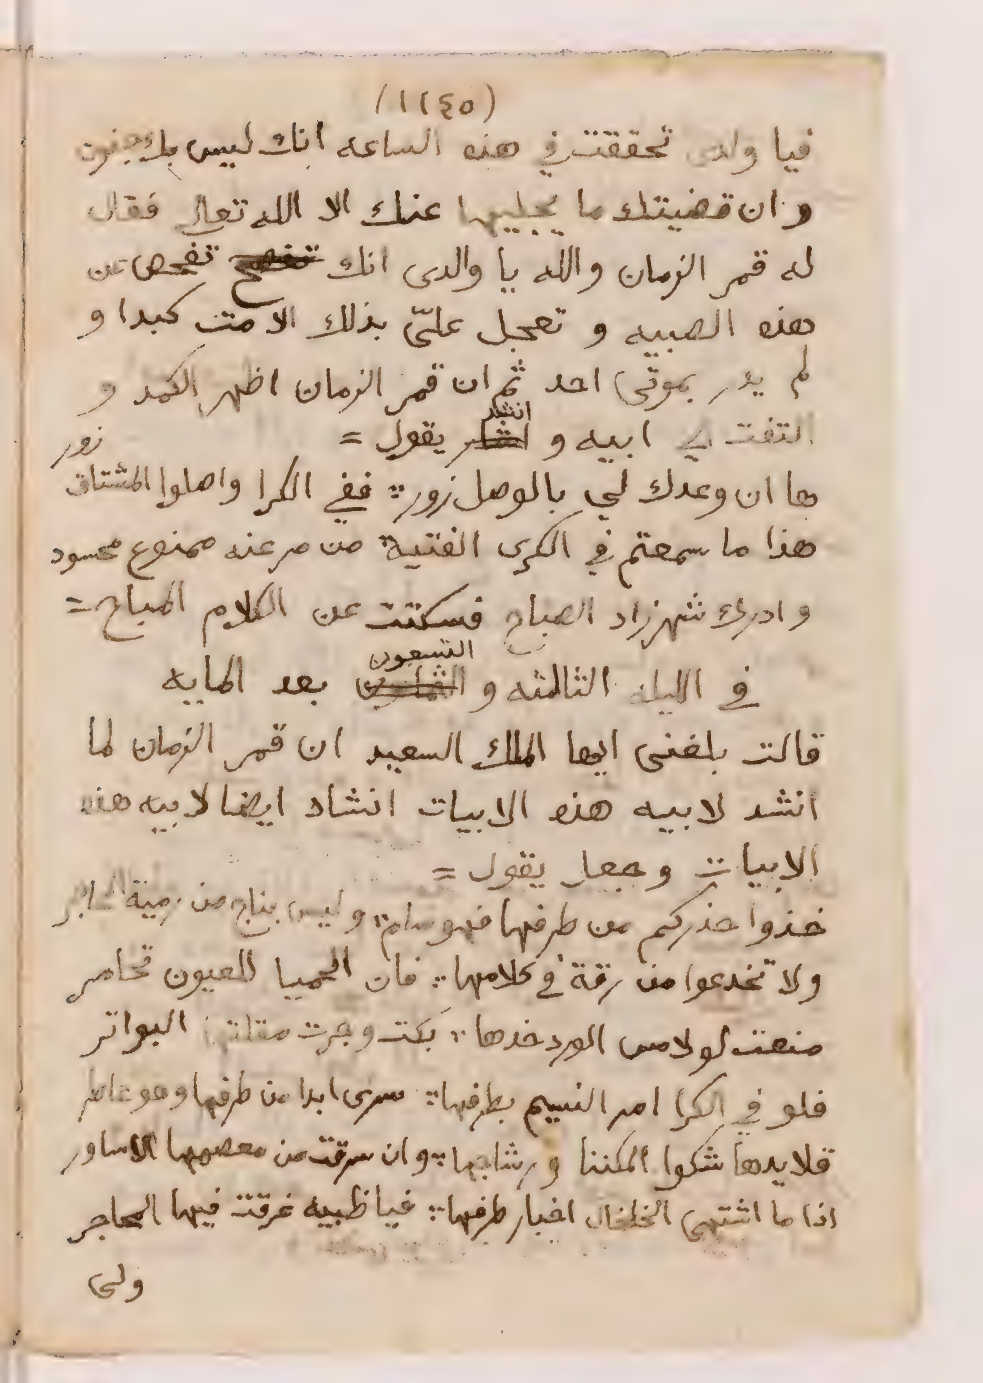 (١١٤٥)
فيا ولدى تحققت في هذه الساعه انك ليس بك جنون
و ان قضيتك ما يجليها عنك الا الله تعالى فقال
له قمر الزمان والله يا والدى انك تفحص تفحص عن
هذه الصبيه و تعجل عليّ بذلك الا مت كبدا و
لم يدر بموتى احد ثم ان قمر الزمان اظهر الكمد و
التفت الى ابيه و انشد يقول =
زور
ها ان وعدك لي بالوصل زور ∴ ففي الكرا واصلوا المشتاق
هذا ما سمعتم في الكرى الفتية ∴ من مر عنه ممنوع محسود
و ادرك شهرزاد الصباح فسكتت عن الكلام المباح =
التسعون
في الليله الثالثه و الثمانون بعد المايه
قالت بلغنى ايها الملك السعيد ان قمر الزمان لما
انشد لابيه هذه الابيات انشاد ايضا لابيه هذه
الابيات وجعل يقول =
خذوا حذركم من طرفها فهو سام ∴ وليس بناج من رمية
ولا تخدعوا من رقة في كلامها ∴ فان الحميا للعيون تخامر
منعت لو لامس الورد خدها ∴ بكت وجرت مقلتي البواتر
فلو في الكرا امر النسيم بطرفها ∴ سرى ابدا من طرفها وهو عاطر
قلايدها شكوا المكننا و رشاحها ∴ وان سرقت من معصمها الاساور
اذا ما اشتهى الخلخال اخبار طرفها ∴ فيا ظبيه غرقت فيها المحاجر
ولى